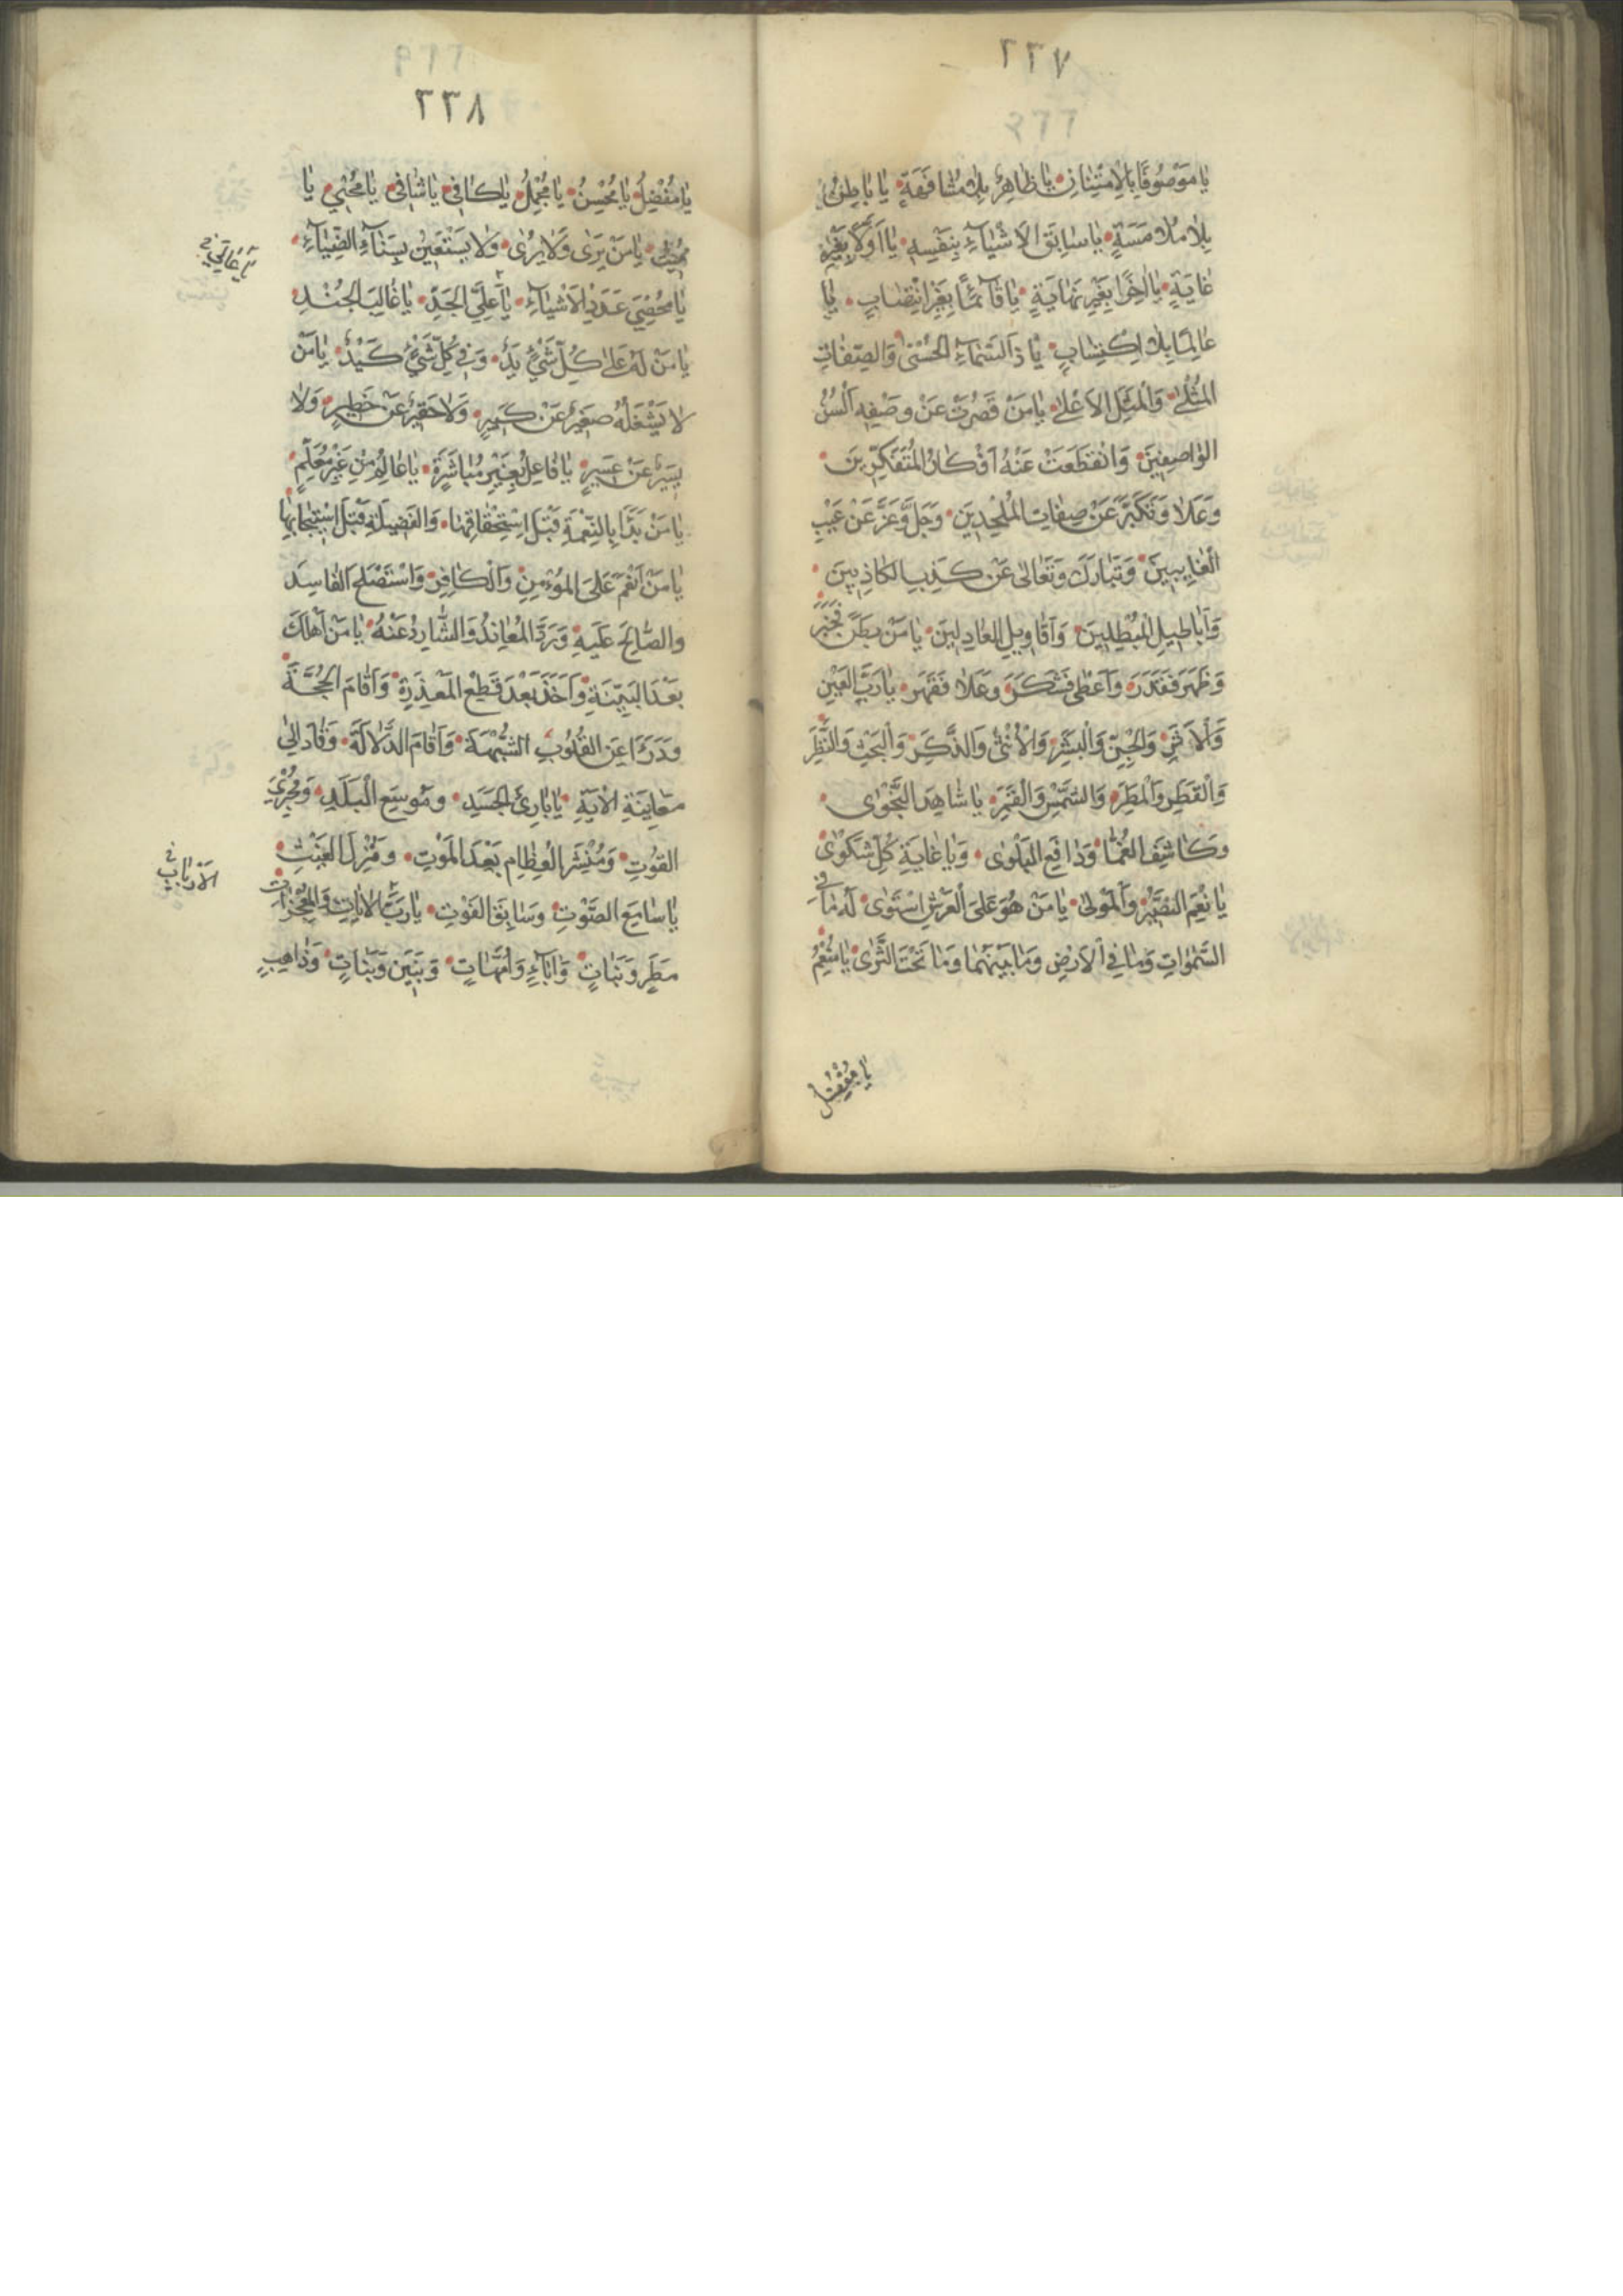 ٢٣٧
يَا مَوْصُوفًا بِالاِمْتِنَانِ يَا ظَاهِرُ بِلا مُشَافَهَةٍ يَا بَاطِنُ
بِلا مُلامَسَةٍ يَا سَابِقَ الأَشْيَاءِ بِنَفْسِهِ يَا أَوَّلاً بِغَيْرِ
غَايَةٍ يَا آخِرًا بِغَيْرِ نِهَايَةٍ يَا قَائِمًا بِغَيْرِ انْتِصَابٍ يَا
عَالِمًا بِلا اكْتِسَابٍ يَا ذَا الأَسْمَاءِ الْحُسْنَى وَالصِّفَاتِ
الْمُثْلَى وَالْمَثَلِ الأَعْلَى يَا مَنْ قَصُرَتْ عَنْ وَصْفِهِ أَلْسُنُ
الْوَاصِفِينَ وَانْقَطَعَتْ عَنْهُ أَفْكَارُ الْمُتَفَكِّرِينَ
وَعَلا وَتَكَبَّرَ عَنْ صِفَاتِ الْمُلْحِدِينَ وَجَلَّ وَعَزَّ عَنْ عَيْبِ
الْعَايِبِينَ وَتَبَارَكَ وَتَعَالَى عَنْ كَذِبِ الْكَاذِبِينَ
وَأَبَاطِيلِ الْمُبْطِلِينَ وَأَقَاوِيلِ الْعَادِلِينَ يَا مَنْ بَطَنَ فَخَبَرَ
وَظَهَرَ فَقَدَرَ وَأَعْطَى فَشَكَرَ وَعَلا فَقَهَرَ يَا رَبَّ الْعَيْنِ
وَالأَثَرِ وَالْجِنِّ وَالْبَشَرِ وَالأُنْثَى وَالذَّكَرِ وَالْبَحْثِ وَالنَّظَرِ
وَالْقَطْرِ وَالْمَطَرِ وَالشَّمْسِ وَالْقَمَرِ يَا شَاهِدَ النَّجْوَى
وَكَاشِفَ الْغُمَّا وَدَافِعَ الْبَلْوَى وَيَا غَايَةَ كُلِّ شَكْوَى
يَا نِعْمَ النَّصِيرُ وَالْمَوْلَى يَا مَنْ هُوَ عَلَى الْعَرْشِ اسْتَوَى لَهُ مَا فِي
السَّمَوَاتِ وَمَا فِي الأَرْضِ وَمَا بَيْنَهُمَا وَمَا تَحْتَ الثَّرَى يَا مُنْعِمُ
يَا مُفْضِلُ
٢٣٨
يَا مُفْضِلُ يَا مُحْسِنُ يَا مُجْمِلُ يَا كَافِي يَا شَافِي يَا مُحْيِي يَا
مُمِيتُ يَا مَنْ يَرَى وَلا يُرَى وَلا يَسْتَعِينُ بِسَنَاءِ الضِّيَاءِ
يَا مُحْصِيَ عَدَدِ الأَشْيَاءِ يَا عَلِيَّ الْجَدِّ يَا غَالِبَ الْجُنْدِ
يَا مَنْ لَهُ عَلَى كُلِّ شَيْءٍ يَدٌ وَفِي كُلِّ شَيْءٍ كَيْدٌ يَا مَنْ
لا يَشْغَلُهُ صَغِيرٌ عَنْ كَبِيرٍ وَلا حَقِيرٌ عَنْ خَطِيرٍ وَلا
يَسِيرٌ عَنْ عَسِيرٍ يَا فَاعِلُ بِغَيْرِ مُبَاشَرَةٍ يَا عَالِمُ مِنْ غَيْرِ مُعَلِّمٍ
يَا مَنْ بَدَأَ بِالنِّعْمَةِ قَبْلَ اسْتِحْقَاقِهَا وَالْفَضِيلَةِ قَبْلَ اسْتِيجَابِهَا
يَا مَنْ أَنْعَمَ عَلَى الْمُؤْمِنِ وَالْكَافِرِ وَاسْتَصْلَحَ الْفَاسِدَ
وَالصَّالِحَ عَلَيْهِ وَرَدَّ الْمُعَانِدَ وَالشَّارِدَ عَنْهُ يَا مَنْ أَهْلَكَ
بَعْدَ الْبَيِّنَةِ وَأَخَذَ بَعْدَ قَطْعِ الْمَعْذِرَةِ وَأَقَامَ الْحُجَّةَ
وَدَرَأَ عَنِ الْقُلُوبِ الشُّبْهَةَ وَأَقَامَ الدَّلالَةَ وَقَادَ إِلَى
مُعَايَنَةِ الآيَةِ يَا بَارِئَ الْجَسَدِ وَمُوسِعَ الْبَلَدِ وَمُجْرِيَ
الْقُوتِ وَمُنْشِرَ الْعِظَامِ بَعْدَ الْمَوْتِ وَمُنْزِلَ الْغَيْثِ
يَا سَامِعَ الصَّوْتِ وَسَابِقَ الْفَوْتِ يَا رَبَّ الآيَاتِ وَالْمُعْجِزَاتِ
مَطَرٍ وَنَبَاتٍ وَآبَاءٍ وَأُمَّهَاتٍ وَبَنِينَ وَبَنَاتٍ وَذَاهِبٍ